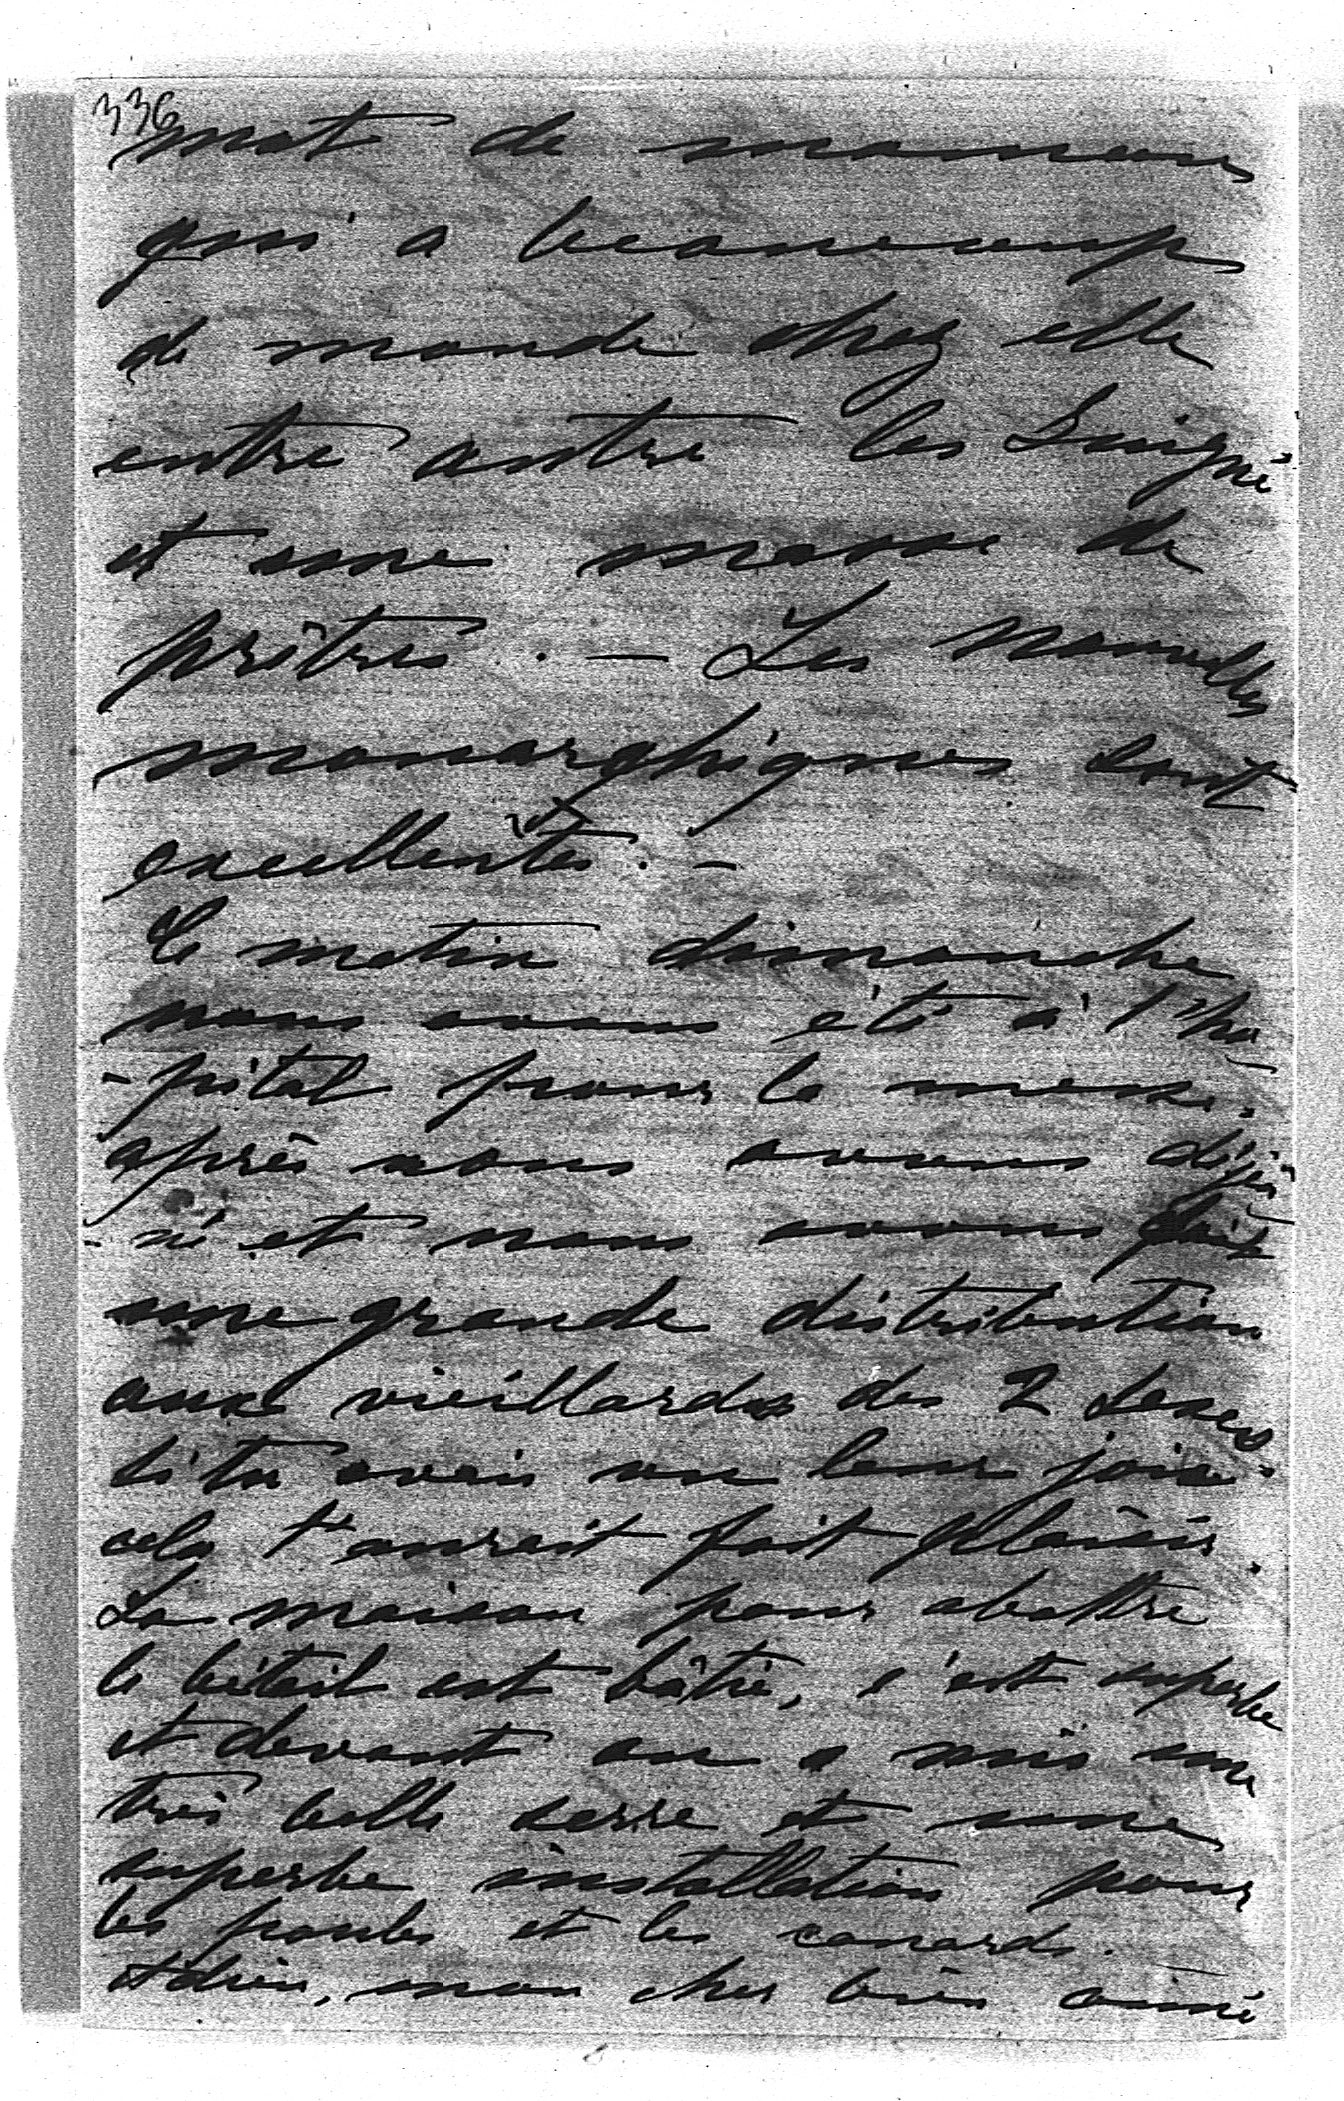 336
mot de maman
qui a beaucoup
de monde chez elle
entre autre les
et une masse de
prêtres. — Les nouvelles
monarchiques sont
excellentes. —
Ce matin dimanche
nous avons été à l'ho
-pital pour la messe.
après nous avons déjeu
-né et nous avons fait
une grande distribution
aux vieillards des 2 sexes
si tu avais vu leur joie
cela t'aurait fait plaisir.
La maison pour abattre
le bétail est bâtie, c'est superbe
et devant on a mis une
très belle serre et une
superbe installation pour
les poules et les canards.
Adieu, mon cher bien aimé